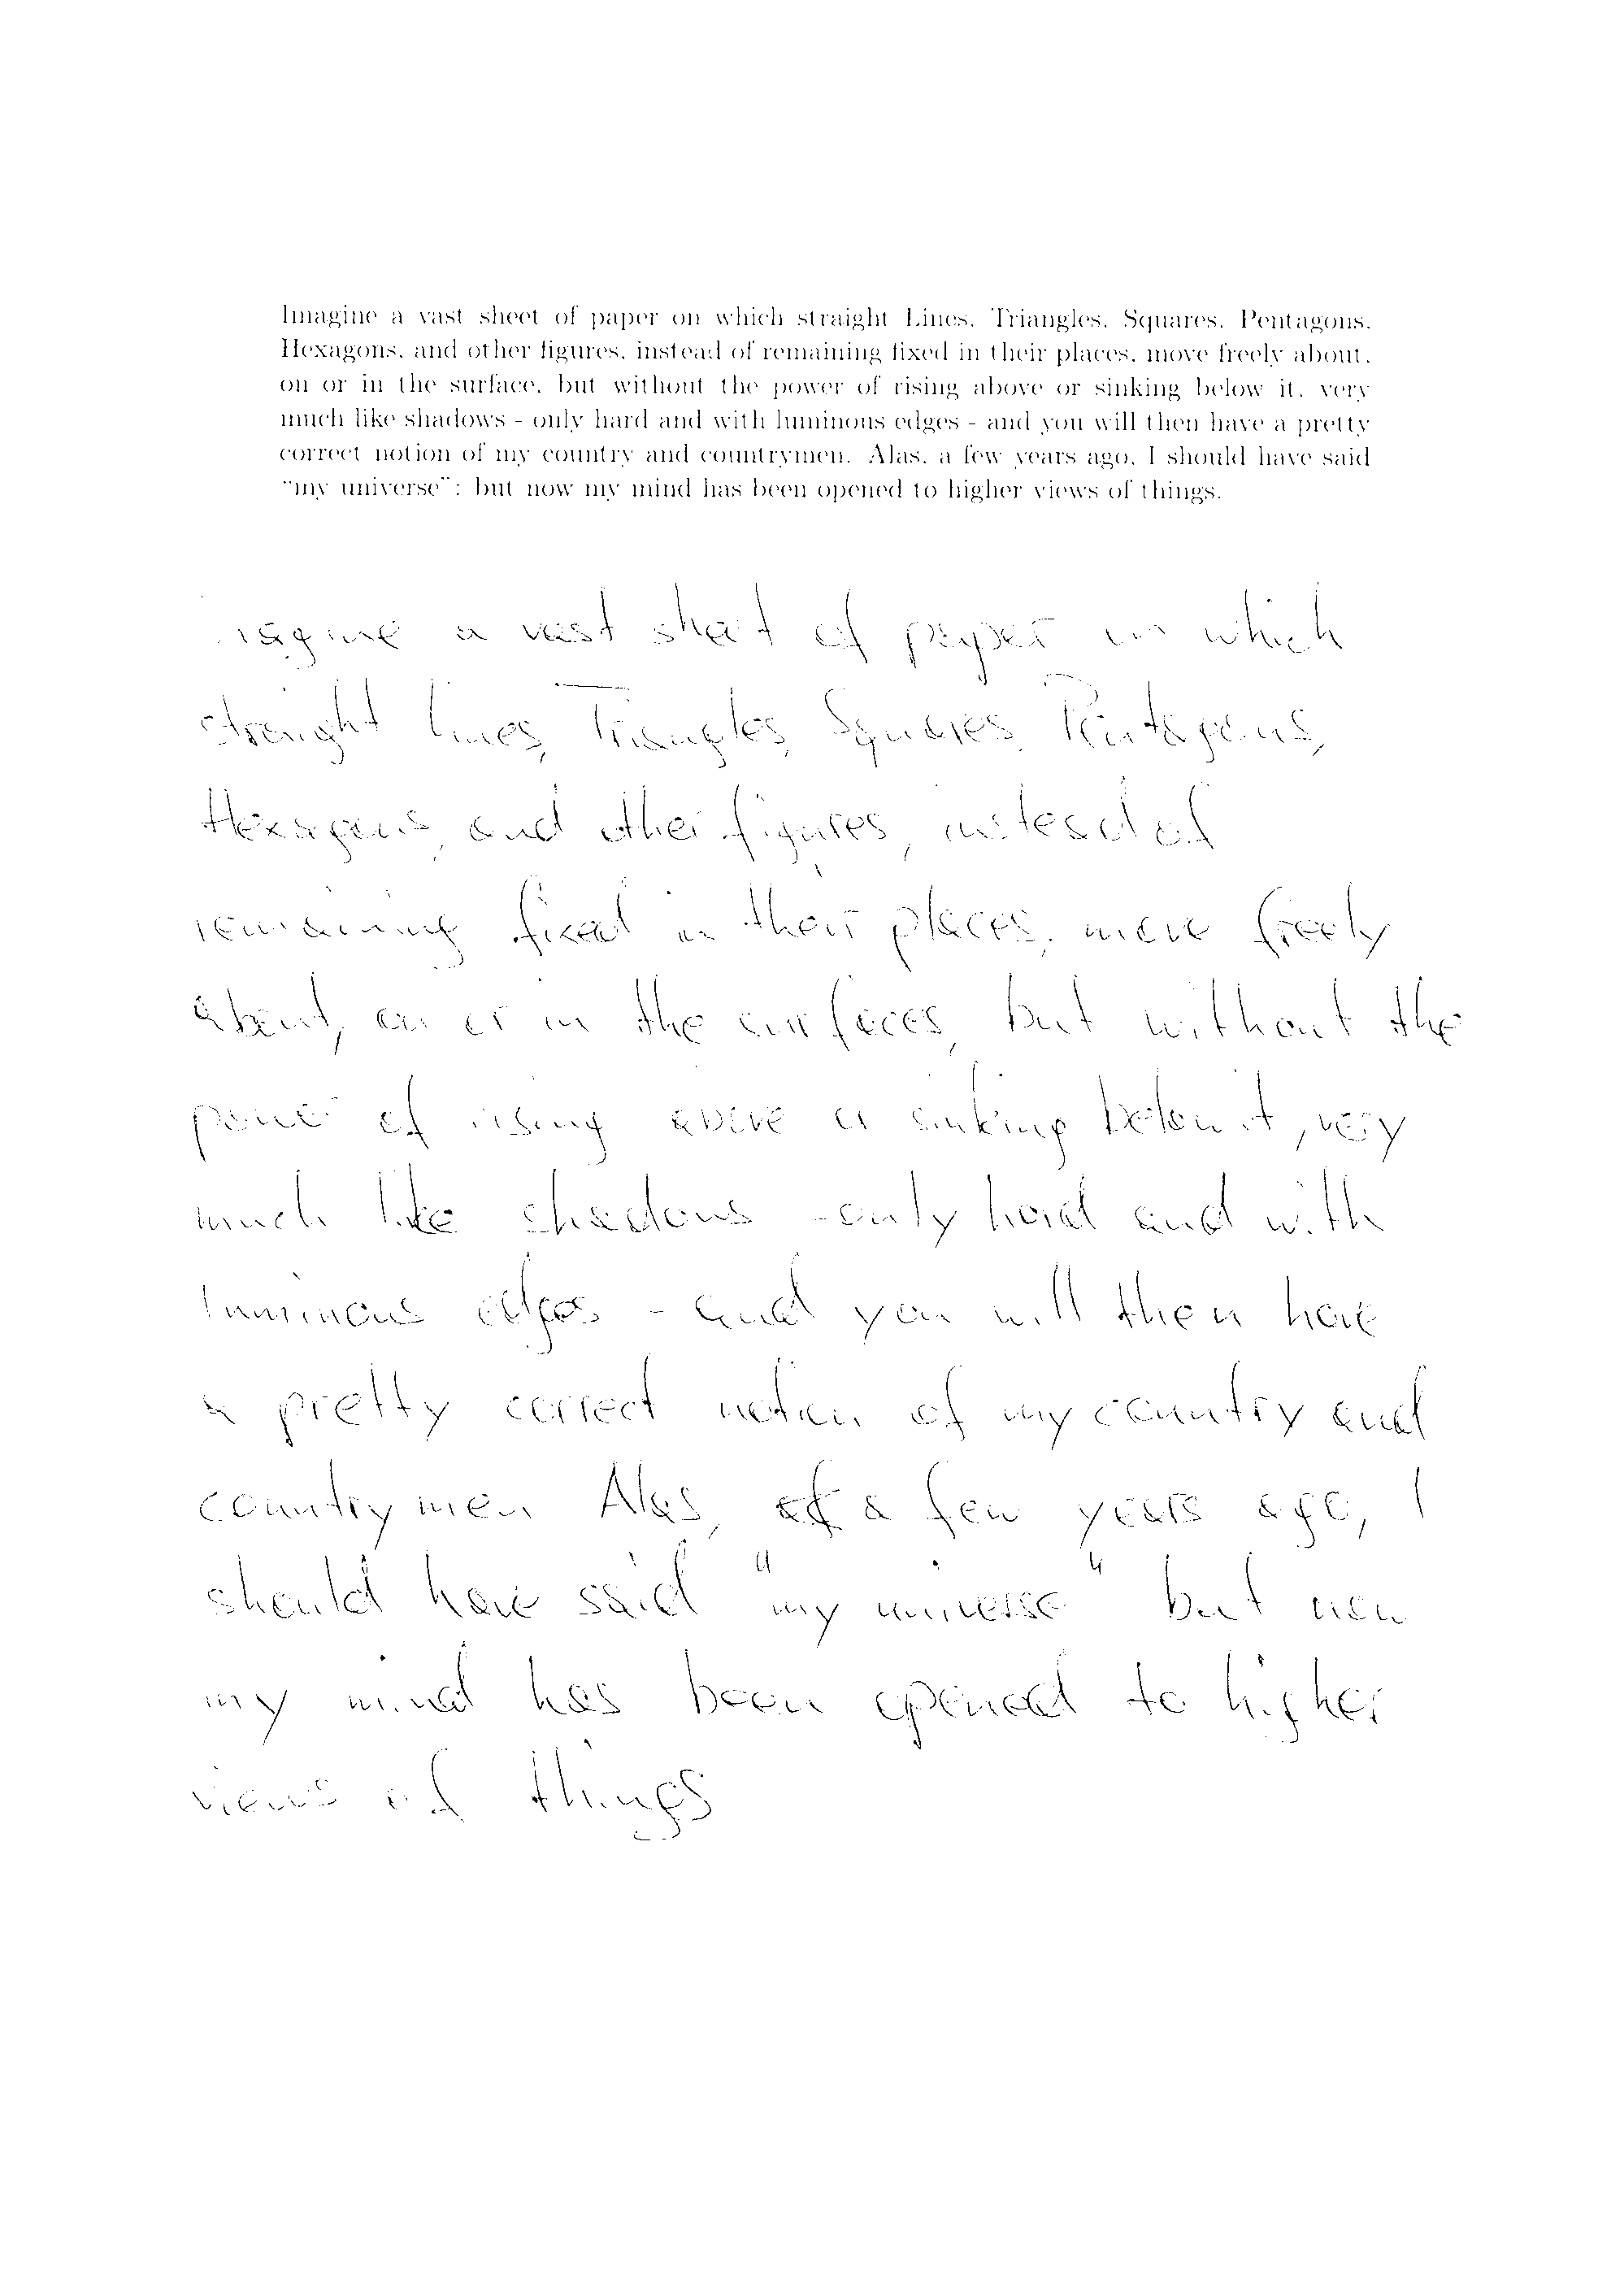 Imagine a vast sheet of paper on which straight Lines, Triangles, Squares, Pentagons,
Hexagons, and other figures, instead of remaining fixed in their places, move freely about,
on or in the surface, but without the power of rising above or sinking below it, very
much like shadows - only hard and with luminous edges - and you will then have a pretty
correct notion of my country and countrymen. Alas, a few years ago, I should have said
"my universe": but now my mind has been opened to higher views of things.
Imagine a vast sheet of paper on which
straight lines, Triangles, Squares, Pentagons,
Hexagons, and other figures, instead of
remaining fixed in their places, move freely
about, on or in the surfaces, but without the
power of rising above or sinking below it, very
much like shadows - only hard and with
luminous edges - and you will then have
a pretty correct notion of my country and
countrymen Alas, a few years ago, I
should have said "my universe" but now
my mind has been opened to higher
views of things